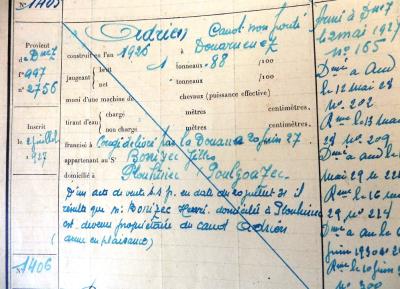 N° 1405
Adrien
Canot non ponté
Provient
de Dnez
f° 997
n° 2756
construit en l'an 1926 à Douarnenez
jaugeant
brut
net
1 tonneaux 88 /100
tonneaux /100
muni d'une machine de chevaux (puissance effective)
tirant d'eau
chargé mètres centimètres.
non chargé mètres centimètres.
Inscrit
le 2 juillet
1927
francisé à Congé délivré par la Douane 20 juin 27
appartenant au Sr Bonizec Gilles
domicilié à Plouhinec Poulgoazec
D'un acte de vente s.s.p. en date du 20 juillet 31 il
résulte que Mr Bonizec Henri domicilié à Plouhinec
est devenu propriétaire du canot Adrien
(armé en plaisance)
N° 1406
Armé à Dnez
12 mai 1927
n° 165
Dmé à Aud
le 12 mai 28
n° 202
Rmé le 13 mai
28 n° 209
Dmé à Aud le
mai 29 n° 22
Rmé le 16 mai
29 n° 224
Dmé à Au le
juin 1930
Rmé le 10 juin
n° 300